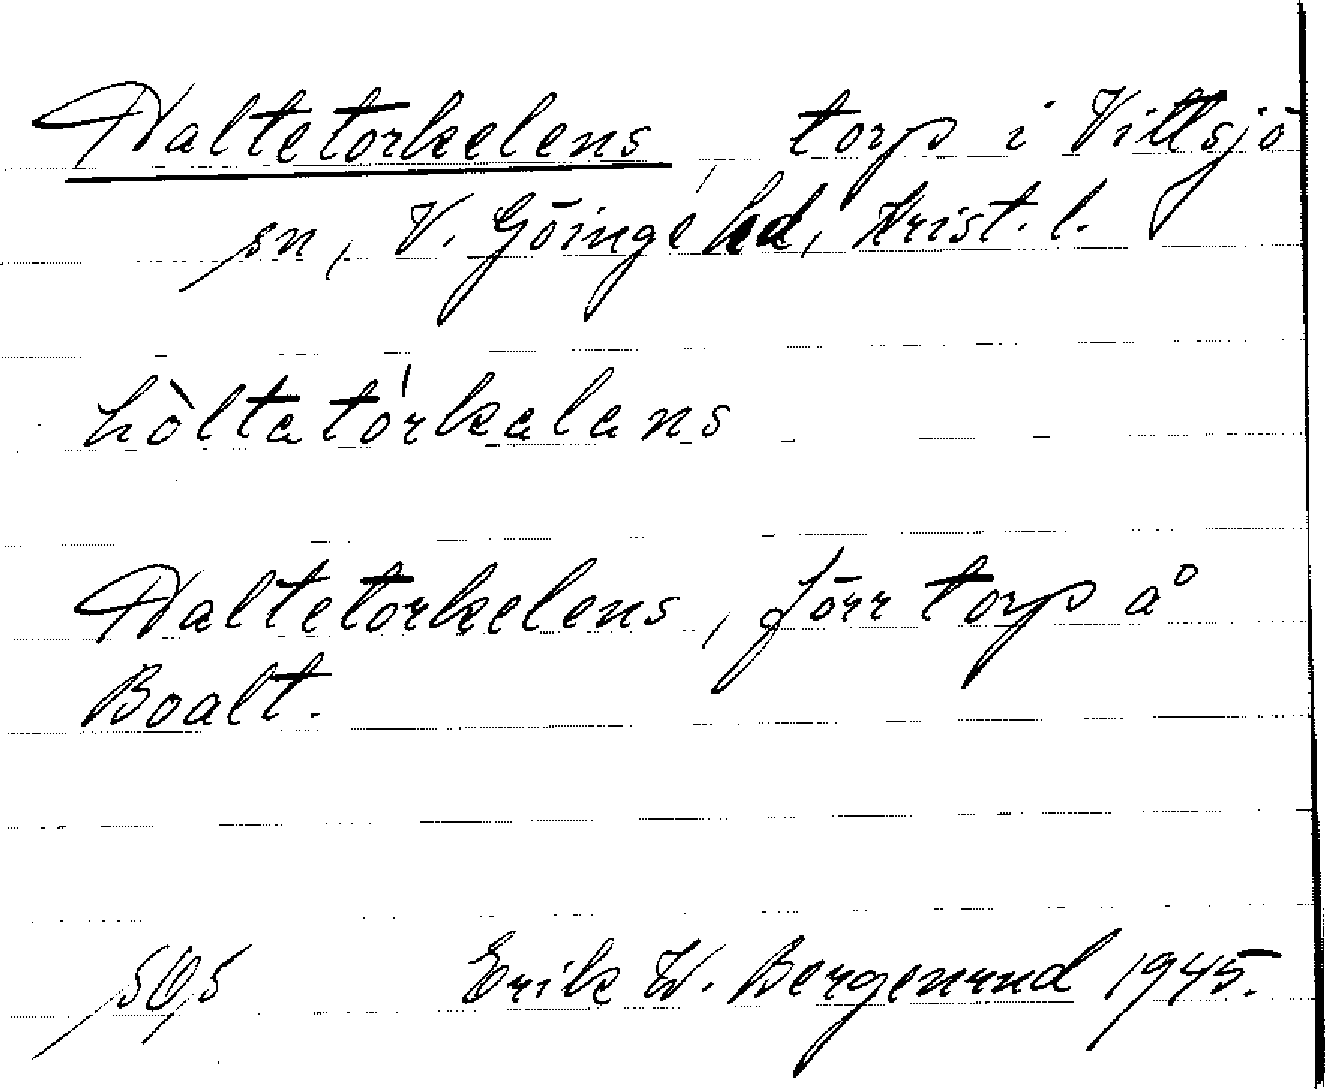 Haltetorkelens, torp i Vittsjö
sn, V. Göinge hd, Krist. l.
hòltatórkalans
Haltetorkelens, förr torp å
Boalt.
Erik W. Bergenrud 1945.